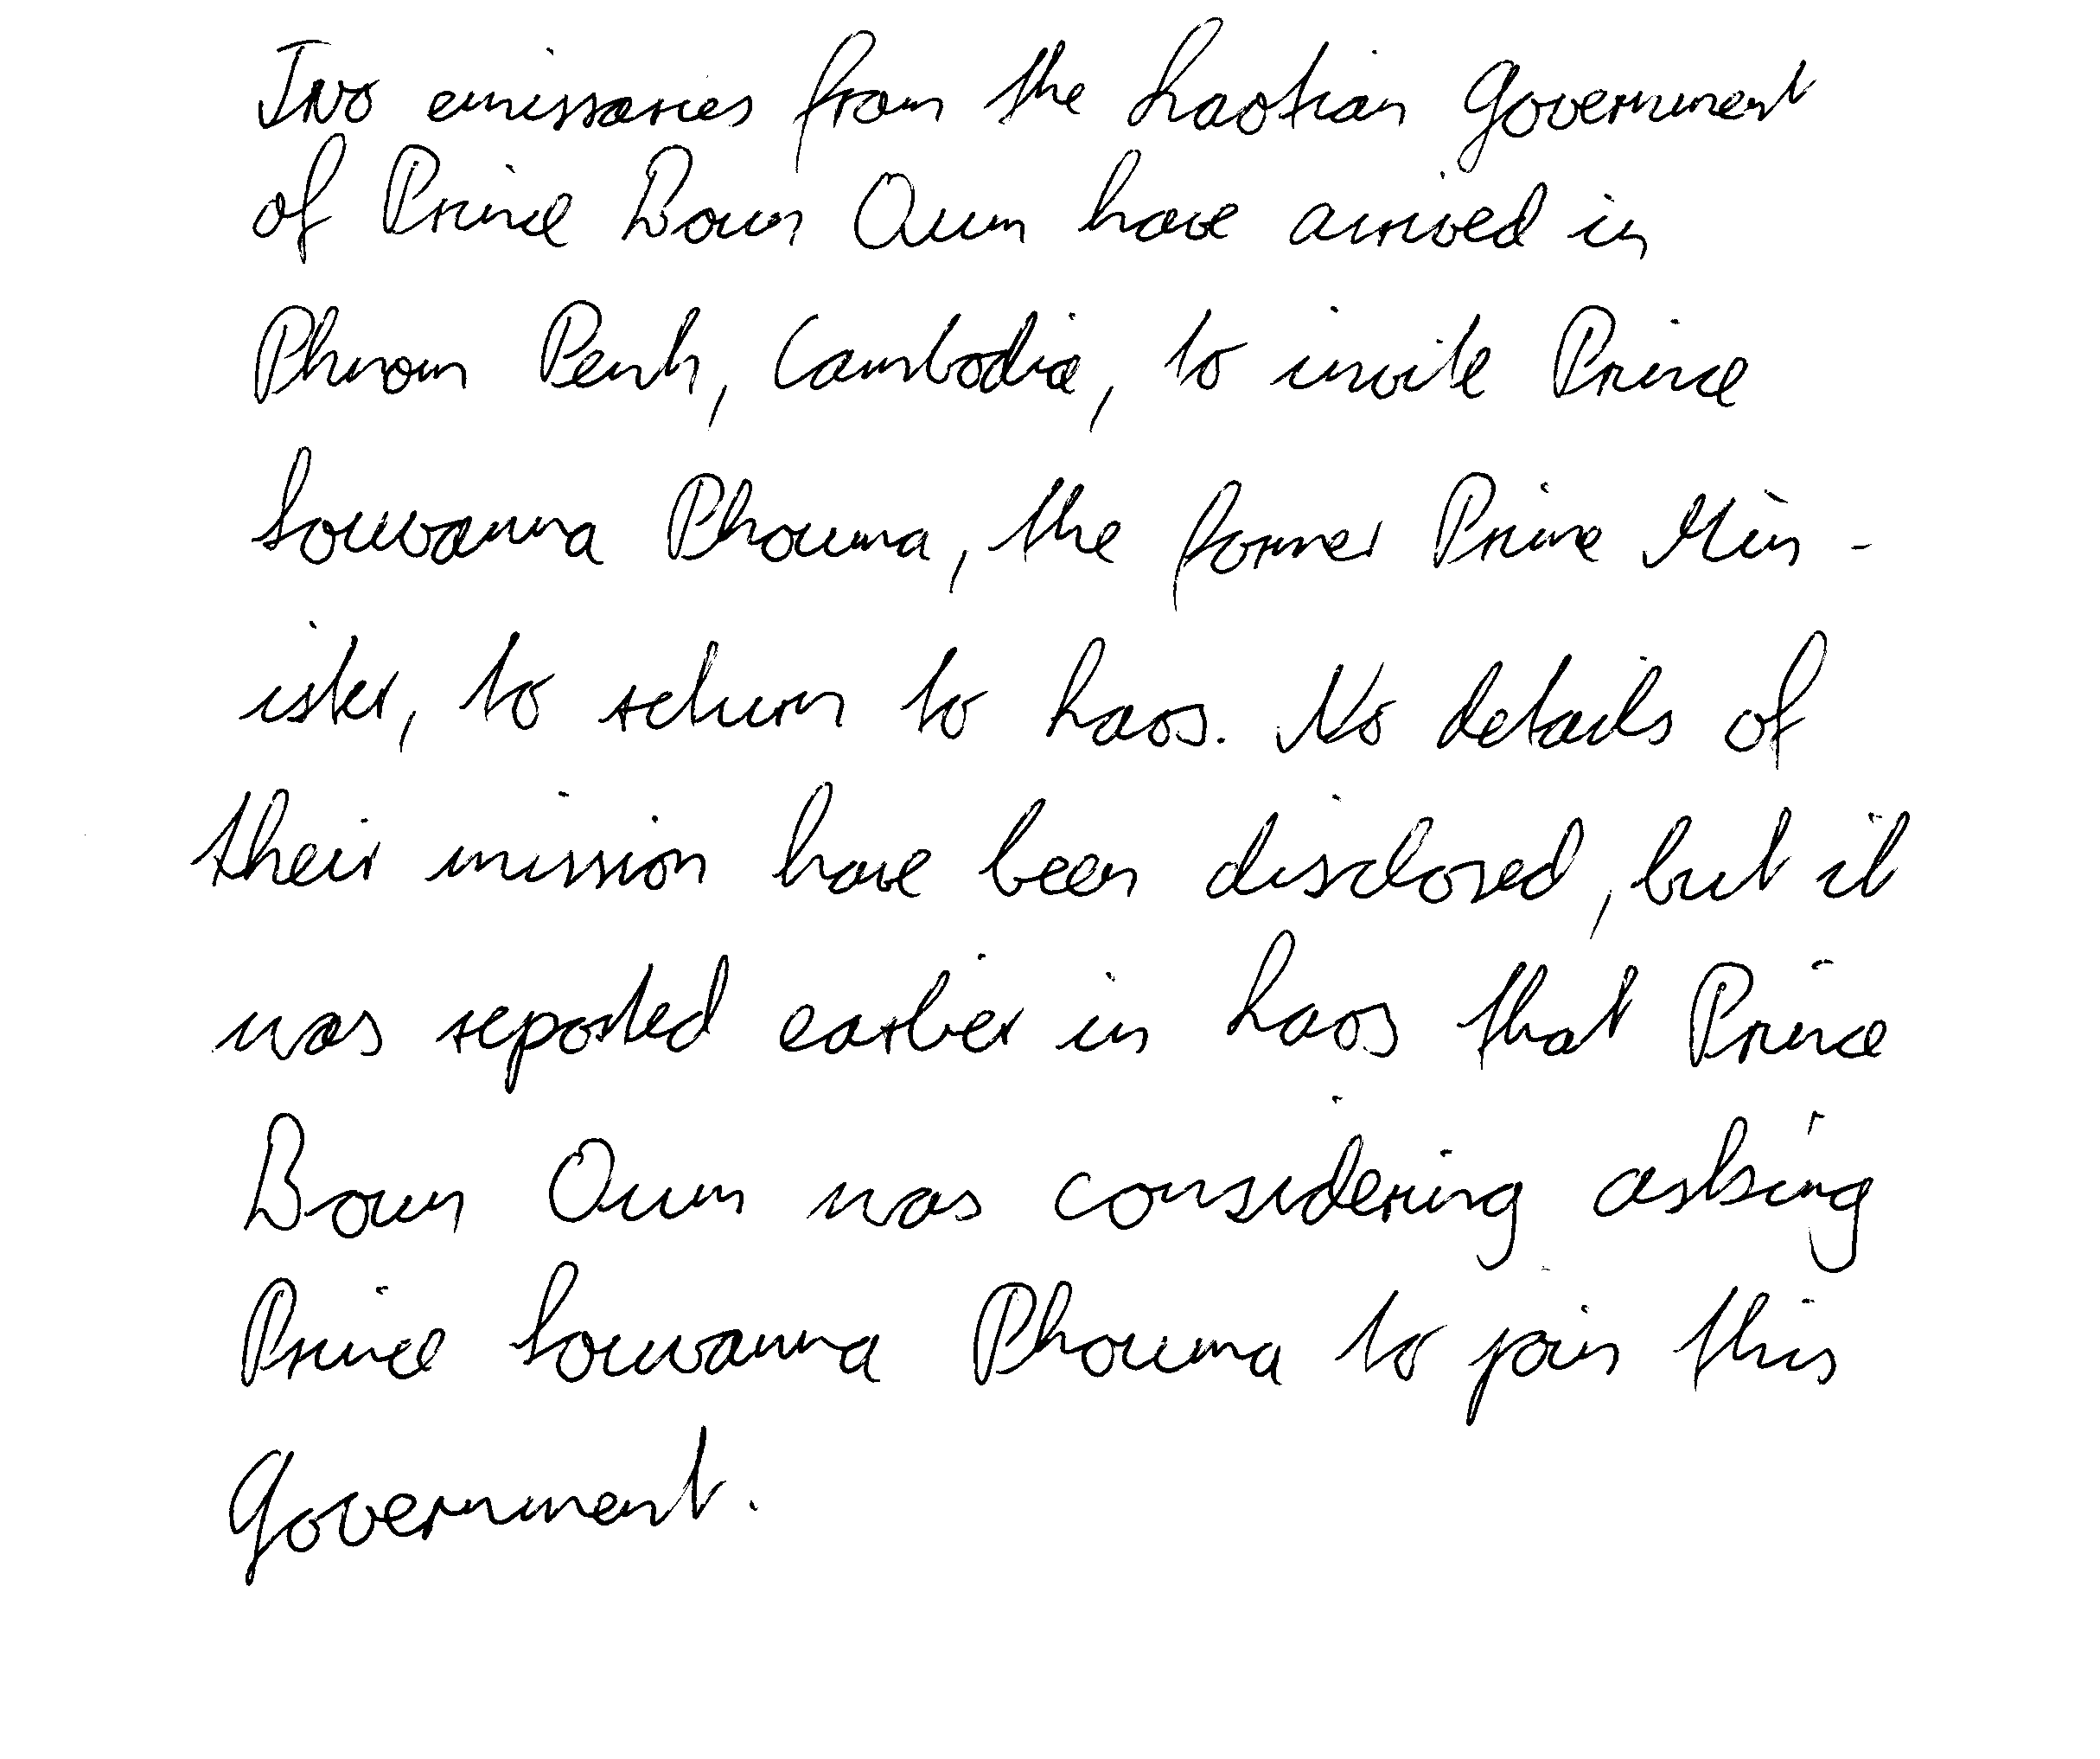 Two emissaries from the Laotian Government
of Prince Boun Oum have arrived in
Phnom Penh, Cambodia, to invite Prince
Souvanna Phouma, the former Prime Min -
ister, to return to Laos. No details of
their mission have been disclosed, but it
was reported earlier in Laos that Prince
Boun Oum was considering asking
Prince Souvanna Phouma to join this
Government.